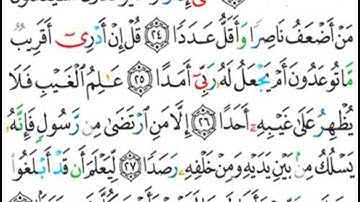 مَنْ أَضْعَفُ نَاصِرًا وَأَقَلُّ عَدَدًا ﴿٢٤﴾ قُلْ إِنْ أَدْرِىٓ أَقَرِيبٌ
مَّا تُوعَدُونَ أَمْ يَجْعَلُ لَهُۥ رَبِّىٓ أَمَدًا ﴿٢٥﴾ عَـٰلِمُ ٱلْغَيْبِ فَلَا
يُظْهِرُ عَلَىٰ غَيْبِهِۦٓ أَحَدًا ﴿٢٦﴾ إِلَّا مَنِ ٱرْتَضَىٰ مِن رَّسُولٍ فَإِنَّهُۥ
يَسْلُكُ مِنۢ بَيْنِ يَدَيْهِ وَمِنْ خَلْفِهِۦ رَصَدًا ﴿٢٧﴾ لِّيَعْلَمَ أَن قَدْ أَبْلَغُوا۟